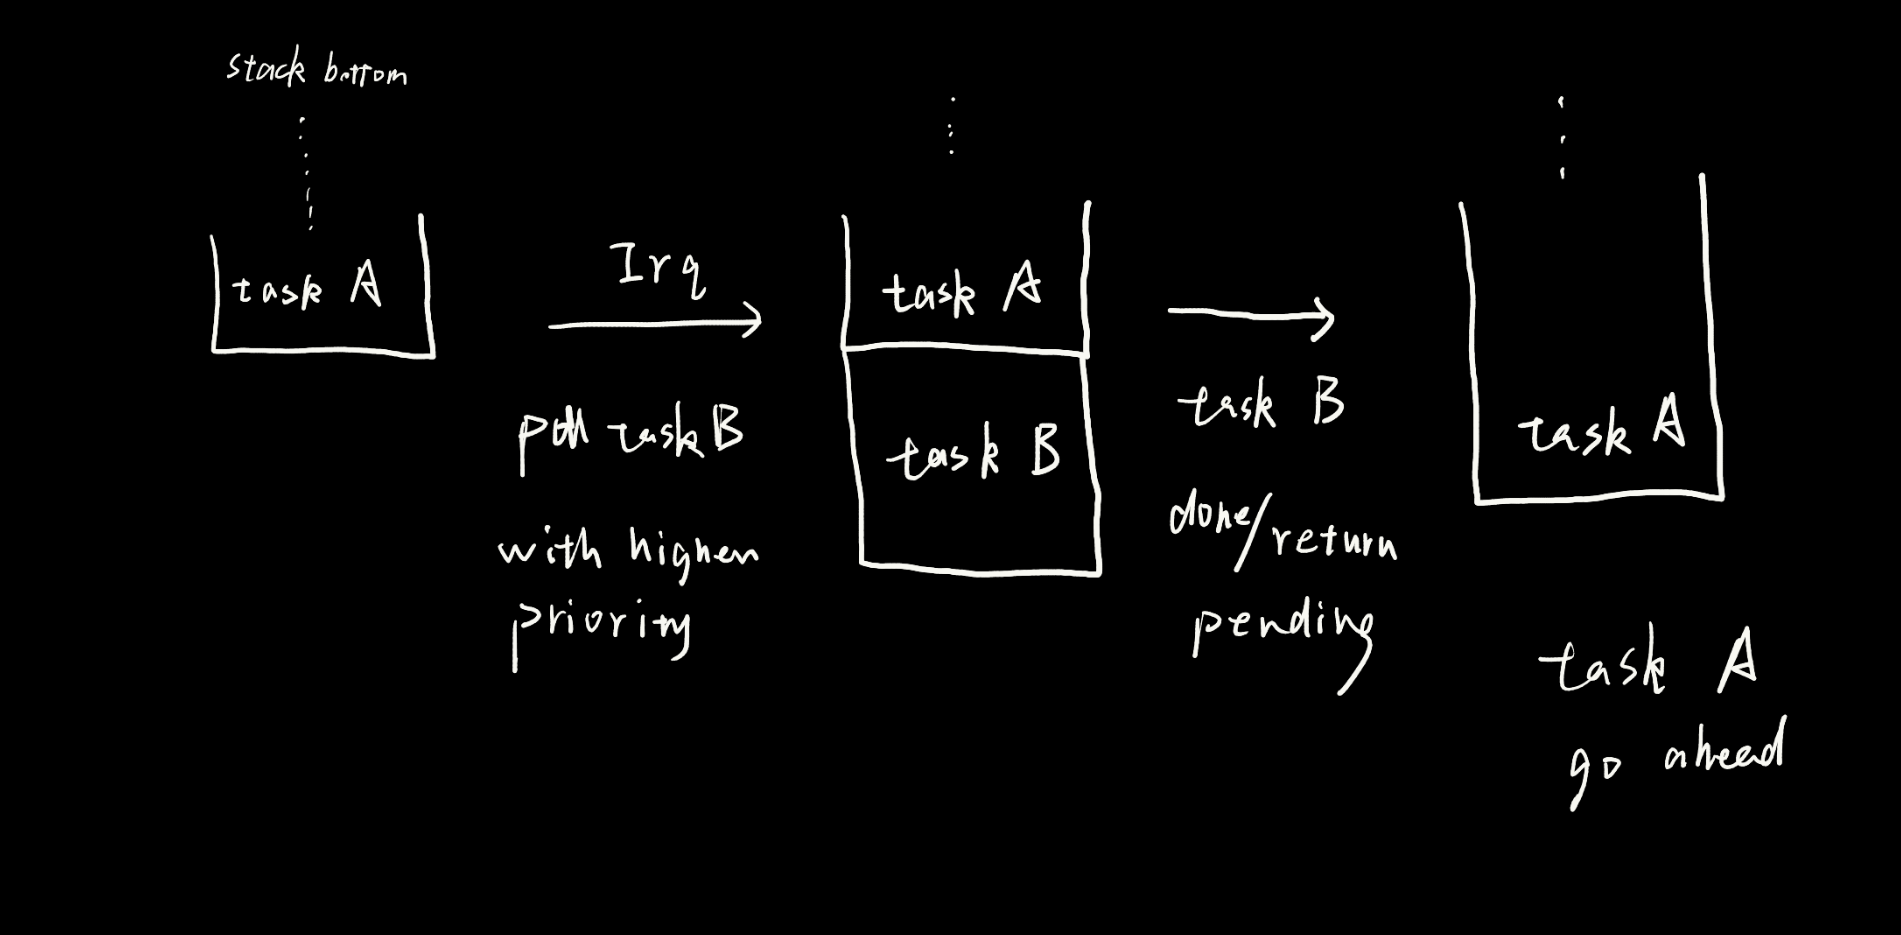 stack bottom
task A
Irq
poll task B
with higher
priority
task A
task B
task B
done/return
pending
task A
task A
go ahead